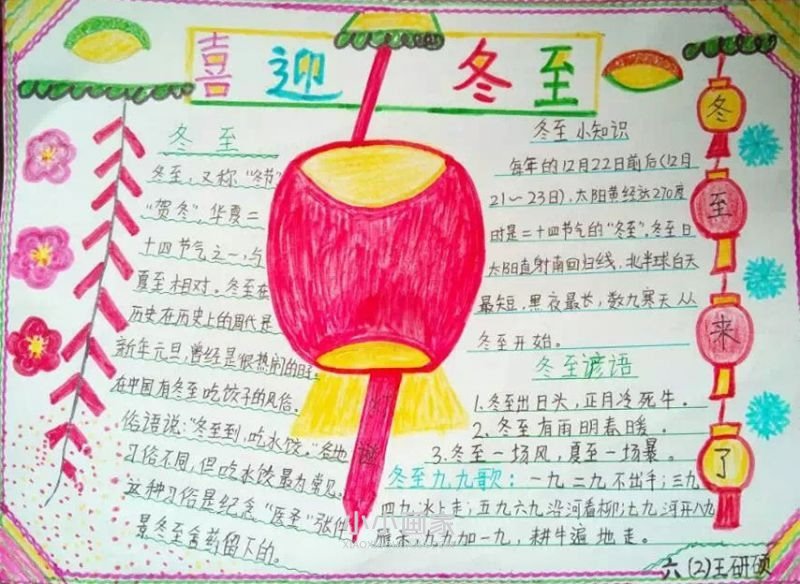 喜迎冬至
冬至
冬至,又称“冬节”
“贺冬”,华夏二
十四节气之一,与
夏至相对。冬至在
历史在历史上的周代是
新年元旦,曾经是很热闹的日子。
在中国有冬至吃饺子的风俗。
俗语说:“冬至到,吃水饺。”各地
习俗不同,但吃水饺最为常见。
这种习俗是纪念“医圣”张仲
景冬至舍药留下的。
冬至小知识
每年的12月22日前后(12月
21~23日),太阳黄经达270度
时是二十四节气的“冬至”。冬至日
太阳直射南回归线,北半球白天
最短,黑夜最长,数九寒天从
冬至开始。
冬至谚语
1.冬至出日头,正月冷死牛。
2、冬至有雨明春暖。
3.冬至一场风,夏至一场暴。
冬至九九歌:一九二九不出手;三九
四九冰上走;五九六九沿河看柳;七九河开八九
雁来九九加一九,耕牛遍地走。
冬至来了
六(2)王研硕
小小画家